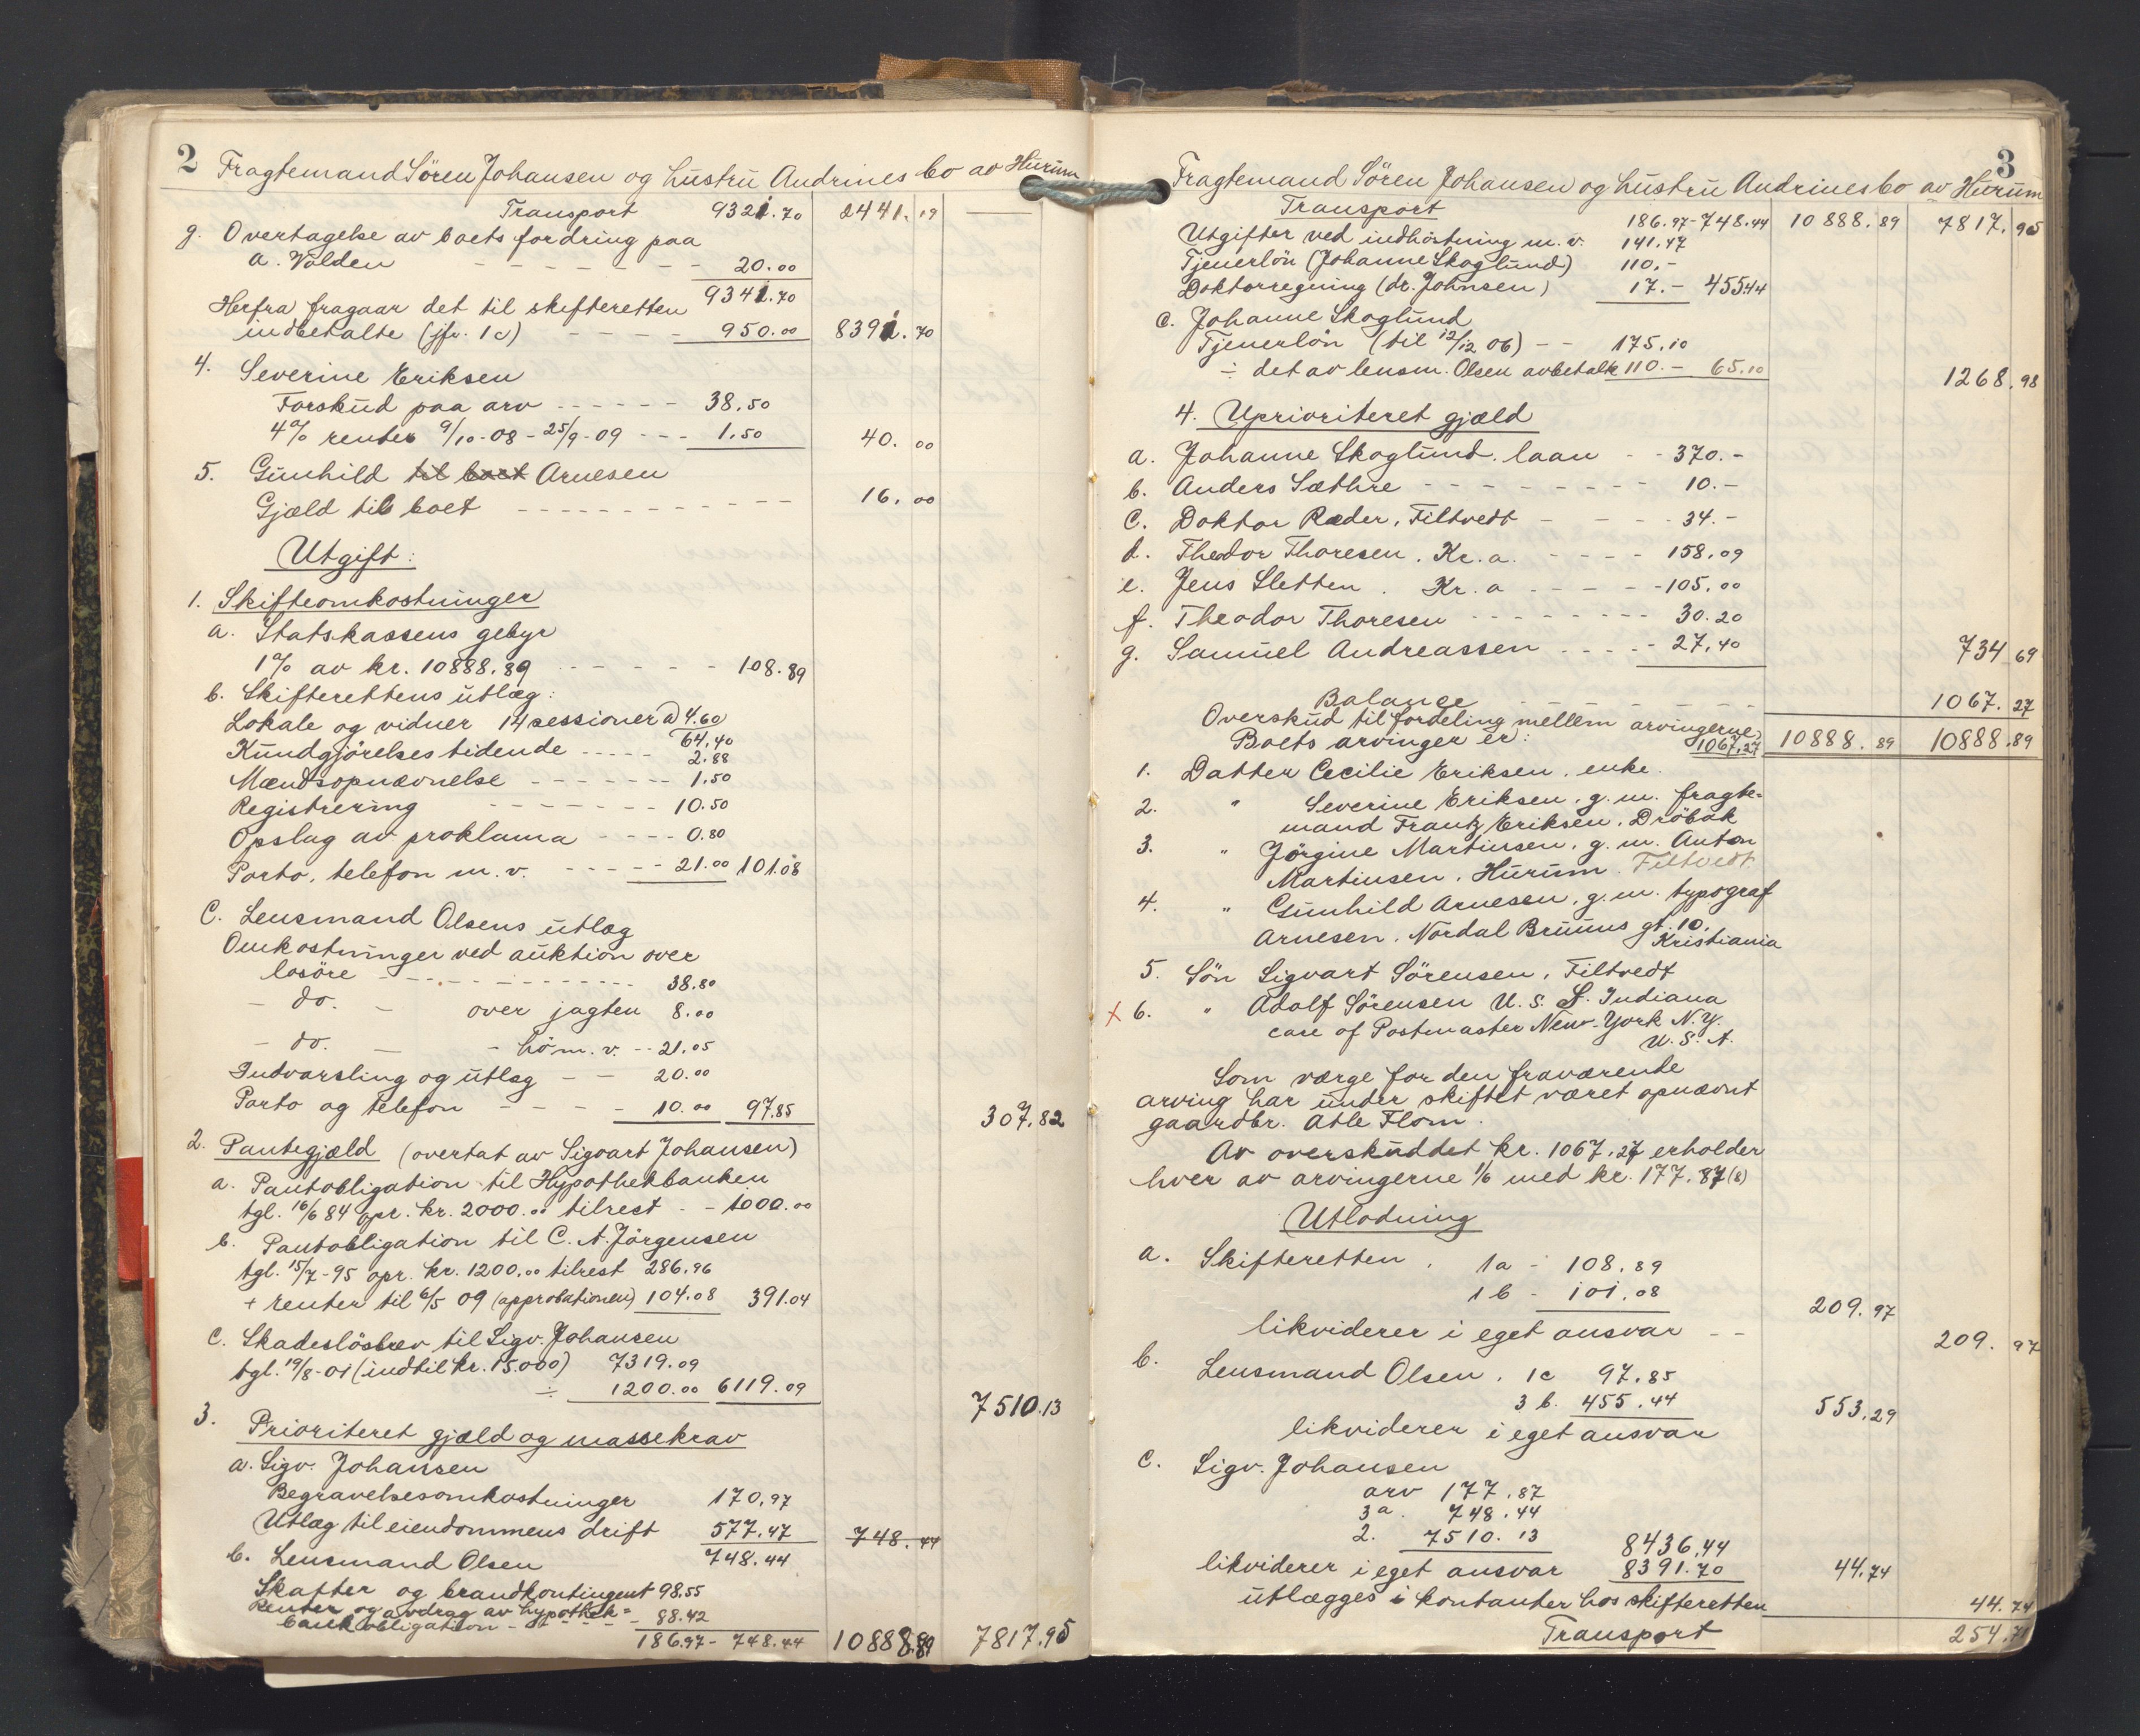 2 Fragtemand Sören Johansen og hustru Andrines bo av Hurum
Transport 9321.70 2441.19
g. Overtagelse av boets fordring paa
A. Volden 20.00
9341.70
Herfra fragaar det til skifteretten
indbetalte (jfr. 1c) 950.00 8391.70
4. Severine Eriksen
Forskud paa arv 38.50
4% renter 9/10-08 - 25/9-09 1.50 40.00
5. Gunhild til boet Arnesen
Gjæld til boet 16.00
Utgift:
1. Skifteomkostninger
a. Statskassens gebyr
1% av kr. 10888.89 108.89
b. Skifterettens utlæg:
Lokale og vidner 14 sessioner à 4.60
64.40
Kundgjörelsestidende 2.88
Mændsopnævnelse 1.50
Registrering 10.50
Opslag av proklama 0.80
Porto, telefon m.v. 21.00 101.08
c. Lensmand Olsens utlæg
Omkostninger ved auktion over
losöre 38.80
- do. - over jagten 8.00
- do. - - hö m.v. 21.05
Indvarsling og utlæg 20.00
Porto og telefon 10.00 97.85 307.82
2. Pantegjæld (overtat av Sigvart Johansen)
a. Pantobligation til Hypothekbanken
tgl. 16/6 84 opr. kr. 2000.00 tilrest 1000.00
b. Pantobligation til C. A. Jörgensen
tgl. 15/7-95 opr. kr. 1200.00 tilrest 286.96
+ renter til 6/5 09 (approbationen) 104.08 391.04
c. Skadeslösbrev til Sigv. Johansen
tgl. 19/8-01 (indtil kr. 15.000) 7319.09
÷ 1200.00 6119.09 7510.13
3. Prioriteret gjæld og massekrav
a. Sigv. Johansen
Begravelsesomkostninger 170.97
Utlæg til eiendommens drift 577.47 748.44
748.44
b. Lensmand Olsen
Skatter og brandkontingent 98.55
Renter og avdrag av hypothek=
bankobligation 88.42
186.97 - 748.44 10888.89 7817.95
3
Fragtemand Sören Johansen og hustru Andrines bo av Hurum
Transport 186.97 - 748.44 10888.89 7817.95
Utgifter ved indhöstning m.v. 141.47
Tjenerlön (Johanne Skoglund) 110.-
Doktorregning (dr. Johnsen) 17.- 455.44
c. Johanne Skoglund
Tjenerlön (til 12/12 06) 175.10
÷ det av lensm. Olsen avbetalte 110.- 65.10 1268.98
4. Uprioriteret gjæld
a. Johanne Skoglund. laan 370.-
b. Anders Sæthre 10.-
c. Doktor Ræder, Filtvedt 34.-
d. Theodor Thoresen. Kr.a. 158.09
e. Jens Sletten. Kr.a 105.00
f. Theodor Thoresen 30.20
g. Samuel Andreassen 27.40 734.69
Balance 1067.27
Overskud til fordeling mellem arvingerne, 1067.27 10888.89 10888.89
Boets arvinger er:
1. Datter Cecilie Eriksen, enke.
2. " Severine Eriksen, g.m. fragte=
mand Frantz Eriksen, Dröbak
3. " Jörgine Martinsen, g.m. Anton
Martinsen, Hurum. Filtvedt
4. " Gunhild Arnesen, g.m. typograf
Arnesen, Nordal Bruuns gt. 10.
Kristiania
5. Sön Sigvart Sörensen, Filtvedt
x 6. " Adolf Sörensen U.S.S. Indiana
care of Postmaster New-York N.Y.
U.S.A.
Som værge for den fraværende
arving har under skiftet været opnævnt
gaardbr. Atle Flom.
Av overskuddet kr. 1067.27 erholder
hver av arvingerne 1/6 med kr. 177.87(8)
Utlodning
a. Skifteretten. 1a - 108.89
1b - 101.08 209.97
likviderer i eget ansvar 209.97
b. Lensmand Olsen. 1c 97.85
3b. 455.44 553.29
likviderer i eget ansvar
c. Sigv. Johansen
arv 177.87
3a. 748.44
2. 7510.13 8436.44
likviderer i eget ansvar 8391.70 44.74
utlægges i kontanter hos skifteretten 44.74
Transport 254.71